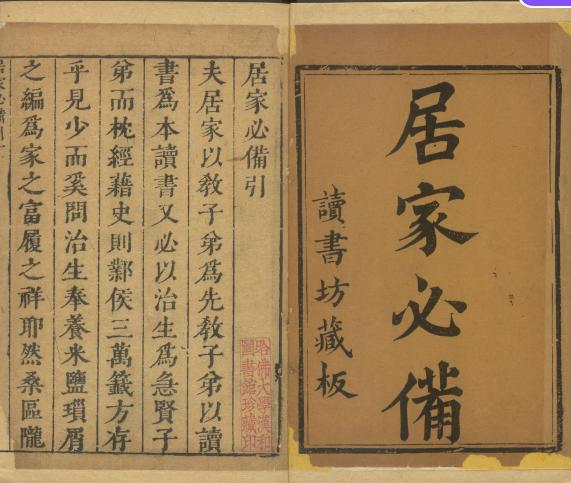 居家必備
讀書坊藏板
居家必備引
夫居家以教子弟爲先教子弟以讀
書爲本讀書又必以治生爲急賢子
弟而枕經藉史則鄴侯三萬籤方存
乎見少而奚問治生奉養米鹽瑣屑
之編爲家之富履之祥耶然桑區隴
哈佛大學漢和
圖書館珍藏印
居家必備引一